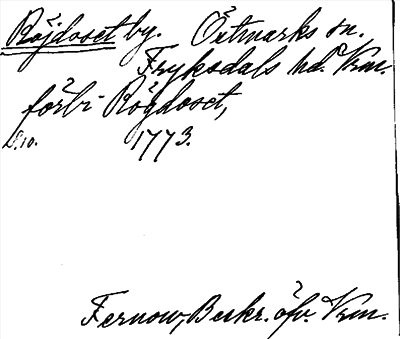 Röjdoset by. Östmarks sn.
Fryksdals hd. Vrm.
förbi Rögdoset,
D. 10. 1773.
Fernow, Beskr. öfv. Vrm.